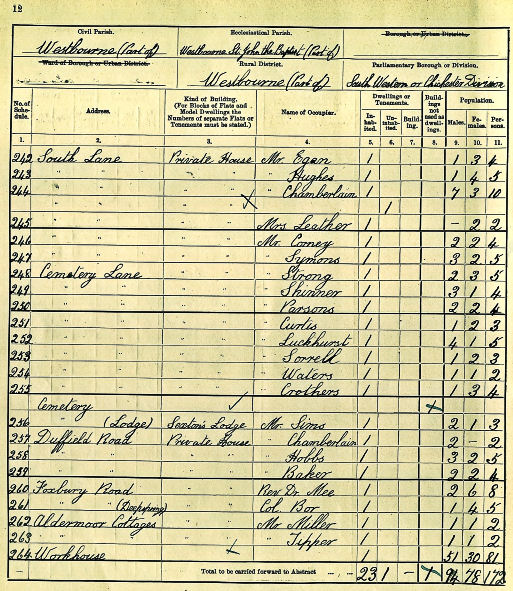 12
Civil Parish. Ecclesiastical Parish. Borough, or Urban District.
Westbourne (Part of) Westbourne St John the Baptist (Part of)
Ward of Borough or Urban District. Rural District. Parliamentary Borough or Division.
Westbourne (Part of) South Western or Chichester Division
No. of Schedule. Address. Kind of Building. (For Blocks of Flats and Model Dwellings the Numbers of separate Flats or Tenements must be stated.) Name of Occupier. Dwellings or Tenements. Inhabited. Uninhabited. Building. Buildings not used as dwellings. Population. Males. Females. Persons.
1. 2. 3. 4. 5. 6. 7. 8. 9. 10. 11.
242 South Lane Private House Mr. Egan 1 1 3 4
243 " " " " " Hughes 1 1 4 5
244 " " " " " Chamberlain 1 7 3 10
" " " " 1
245 " " " " Mrs Leather 1 - 2 2
246 " " " " Mr. Corney 1 2 2 4
247 " " " " " Symons 1 3 2 5
248 Cemetery Lane " " " Strong 1 2 3 5
249 " " " " " Skinner 1 3 1 4
250 " " " " " Parsons 1 2 2 4
251 " " " " " Curtis 1 1 2 3
252 " " " " " Luckhurst 1 4 1 5
253 " " " " " Sorrell 1 1 2 3
254 " " " " " Waters 1 1 1 2
255 " " " " " Crothers 1 1 3 4
Cemetery +
256 " (Lodge) Sexton's Lodge Mr. Sims 1 2 1 3
257 Duffield Road Private House " Chamberlain 1 2 - 2
258 " " " " " Hobbs 1 3 2 5
259 " " " " " Baker 1 2 2 4
260 Foxbury Road " " Rev Dr Mee 1 2 6 8
261 " " (Deepspring) " " Col. Bor 1 1 4 5
262 Aldermoor Cottages " " Mr Miller 1 1 1 2
263 " " " " " Tipper 1 1 1 2
264 Workhouse 51 30 81
Total to be carried forward to Abstract 23 1 - + 94 78 172